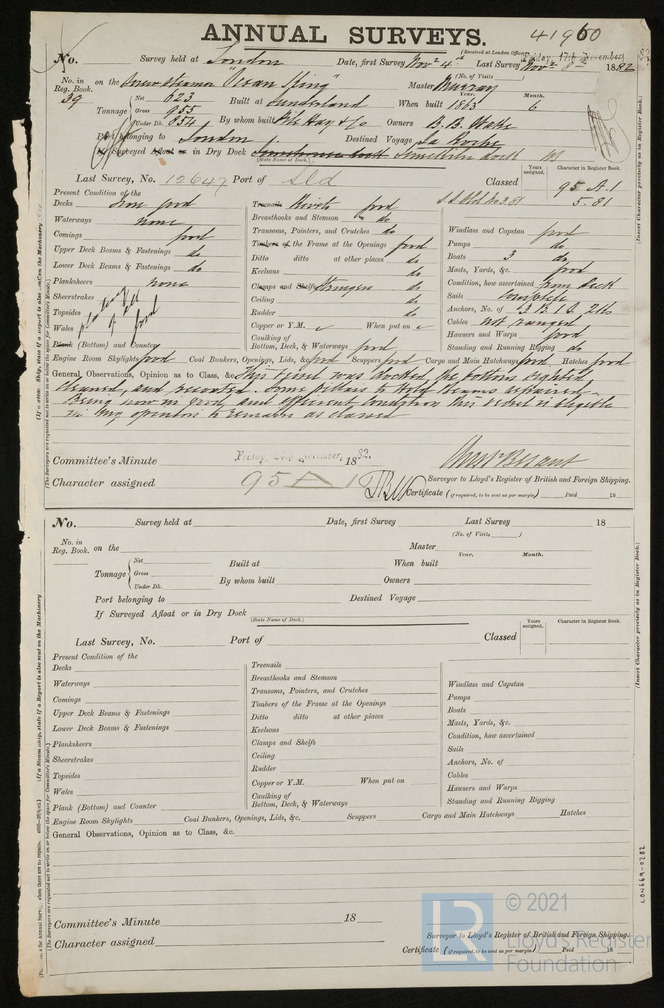 41960
ANNUAL SURVEYS.
(Received at London Office,
No. Survey held at London Date, first Survey Nov 4th Last Survey Nov 8th 1882
(No. of Visits)
No. in Reg. Book. on the Screw Steamer "Ocean King" Master Murray
39
Year. Month.
Tonnage Net 623 Built at Sunderland When built 1863 6
Gross 955
Under Dk. 854 By whom built Pile Hay & Co Owners
Port belonging to London Destined Voyage
If Surveyed Afloat or in Dry Dock
(State Name of Dock.)
Last Survey, No. 12647 Port of Sld Classed 95 A.1
5.81
Years assigned. Character in Register Book.
Present Condition of the
Decks Iron good
Waterways none
Comings good
Upper Deck Beams & Fastenings do
Lower Deck Beams & Fastenings do
Planksheers none
Sheerstrakes
Topsides
Wales
plating of all good
Plank (Bottom) and Counter
Engine Room Skylights good Coal Bunkers, Openings, Lids, &c. good Scuppers good Cargo and Main Hatchways good Hatches good
Treenails Rivets good
Breasthooks and Stemson do
Transoms, Pointers, and Crutches do
Timbers of the Frame at the Openings good
Ditto ditto at other places do
Keelsons do
Clamps and Shelfs Stringers do
Ceiling do
Rudder do
Copper or Y.M. When put on
Caulking of
Bottom, Deck, & Waterways good
Windlass and Capstan good
Pumps do
Boats 3 do
Masts, Yards, &c. good
Condition, how ascertained from deck
Sails complete
Anchors, No. of
Cables not ranged
Hawsers and Warps good
Standing and Running Rigging do
General Observations, Opinion as to Class, &c. This vessel was docked the bottom sighted
cleaned, and recoated. Some pillars to Hold Beams repaired.
Being now in good and efficient condition this vessel is eligible
in my opinion to remain as classed
Committee's Minute Friday, November, 1882.
Character assigned 95 A 1
Surveyor to Lloyd's Register of British and Foreign Shipping.
Certificate (if required, to be sent as per margin) Paid 18
No. Survey held at Date, first Survey Last Survey 18
(No. of Visits )
No. in Reg. Book. on the Master
Year. Month.
Tonnage Net Built at When built
Gross
Under Dk. By whom built Owners
Port belonging to Destined Voyage
If Surveyed Afloat or in Dry Dock
(State Name of Dock.)
Last Survey, No. Port of Classed
Years assigned. Character in Register Book.
Present Condition of the
Decks
Waterways
Comings
Upper Deck Beams & Fastenings
Lower Deck Beams & Fastenings
Planksheers
Sheerstrakes
Topsides
Wales
Plank (Bottom) and Counter
Treenails
Breasthooks and Stemson
Transoms, Pointers, and Crutches
Timbers of the Frame at the Openings
Ditto ditto at other places
Keelsons
Clamps and Shelfs
Ceiling
Rudder
Copper or Y.M. When put on
Caulking of
Bottom, Deck, & Waterways
Windlass and Capstan
Pumps
Boats
Masts, Yards, &c.
Condition, how ascertained
Sails
Anchors, No. of
Cables
Hawsers and Warps
Standing and Running Rigging
Engine Room Skylights Coal Bunkers, Openings, Lids, &c. Scuppers Cargo and Main Hatchways Hatches
General Observations, Opinion as to Class, &c.
Committee's Minute 18
Character assigned
Surveyor to Lloyd's Register of British and Foreign Shipping.
Certificate (if required, to be sent as per margin) Paid 18
(Insert Character precisely as in Register Book.)
(Insert Character precisely as in Register Book.)
LON669-0282
LR © 2021
Lloyd's Register
Foundation